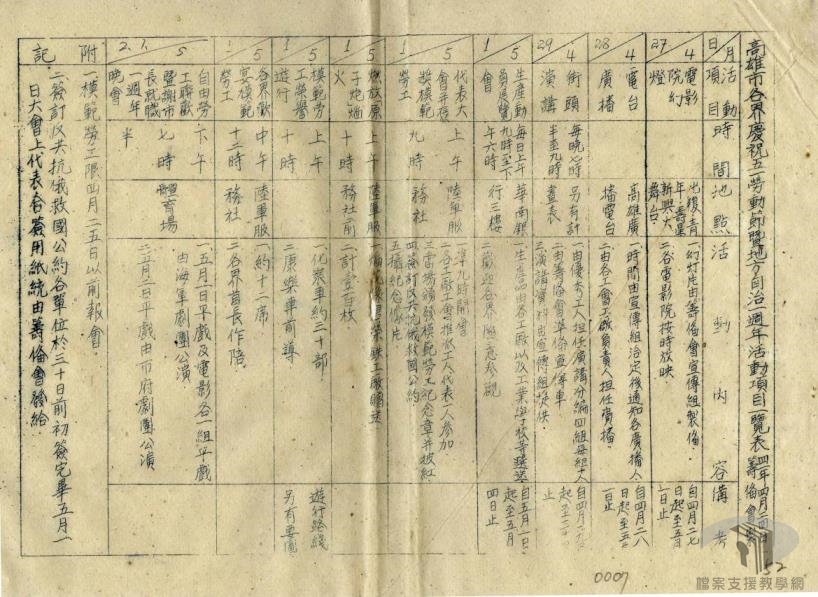 高雄市各界慶祝五一勞動節暨地方自治一週年活動項目一覽表 四十年四月二四日籌備會製
月日
活動項目
時間
池點
活動內容
備考
4/27
電影院幻燈
光復青年壽星新興大舞台
一、幻灯片由籌備會宣傳組製備.
二、各電影院按時放映
自四月二七日起至五月一日止
4/28
電台廣播
高雄廣播電台
一、時間由宣傳組洽定後通知各廣播人
二、由各工會工廠負責人担任廣播.
自四月二八日起至五一日止
4/29
街頭演講
每晚七時半至九時
另有計畫表
一、由優秀工人担任廣講分編四組每組人
二、由籌備會準條宣傳車
三、演講資料由宣傳組提供.
自四月二
起至
止
5/1
生產動員展覽會
每日上午九時至下午六時
華南銀行二樓
一、生產品由各工廠以及工業學校等選送
二、歡迎各界隨意參觀
自五月一日起至五月四日止
5/1
代表大會并獎模範勞工
上午九時
陸軍服務社
一、準九時開會
二、各工廠工會推派工人代表二人參加
三、當場頒發模範勞工紀念章并披紅
四、簽訂反共抗俄救國公約
五、攝紀念像片
5/1
燃放原子炮焰火
上午十時
陸軍服務社前
二、計壹百枚
5/1
模範勞工榮譽遊行
上午十時
一、化裝車約三十部
二、康樂車前導
遊行路綫另有要圖
5/1
各界歡宴模範勞工
中午十二時
陸軍服務社
一、約十二席
二、各界首長作陪
5/1.2.
自由勞工聯歡暨謝市長就職一週年晚會
下午七時半
體育場
一、五月一日平戲及電影各一組平戲由海軍劇團公演
二、五月二日平戲由市府劇團公演
附記
一、模範勞工限四月二五日以前報會
二、簽訂反共抗俄救國公約各單位於三十日前初簽完畢五月一日大會上代表合簽用紙統由籌備會發給.
52
0007
檔案支援教學網